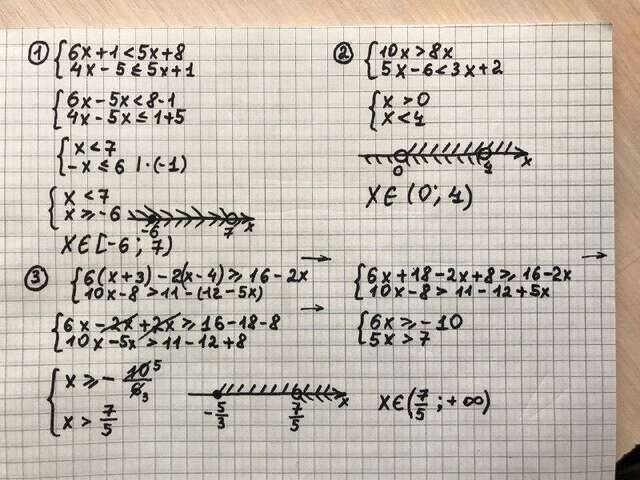 ① { 6x + 1 < 5x + 8
4x - 5 ≤ 5x + 1
{ 6x - 5x < 8 - 1
4x - 5x ≤ 1 + 5
{ x < 7
-x ≤ 6 | · (-1)
{ x < 7
x ≥ -6
-6 7 x
x ∈ [-6 ; 7)
② { 10x > 8x
5x - 6 < 3x + 2
{ x > 0
x < 4
0 4 x
x ∈ (0 ; 4)
③ { 6(x + 3) - 2(x - 4) ≥ 16 - 2x →
10x - 8 > 11 - (12 - 5x)
{ 6x + 18 - 2x + 8 ≥ 16 - 2x →
10x - 8 > 11 - 12 + 5x
{ 6x - 2x + 2x ≥ 16 - 18 - 8 →
10x - 5x > 11 - 12 + 8
{ 6x ≥ -10
5x > 7
{ x ≥ - 10 5 / 6 3
x > 7/5
-5/3 7/5 x
x ∈ (7/5 ; +∞)